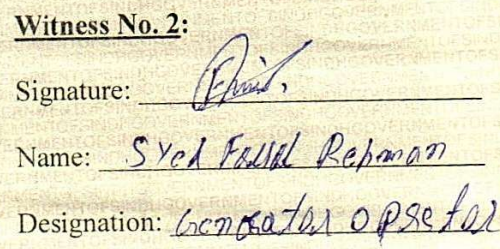 Witness No. 2:
Signature:
Name: Syed Faisal Rehman
Designation: Genreator opretor